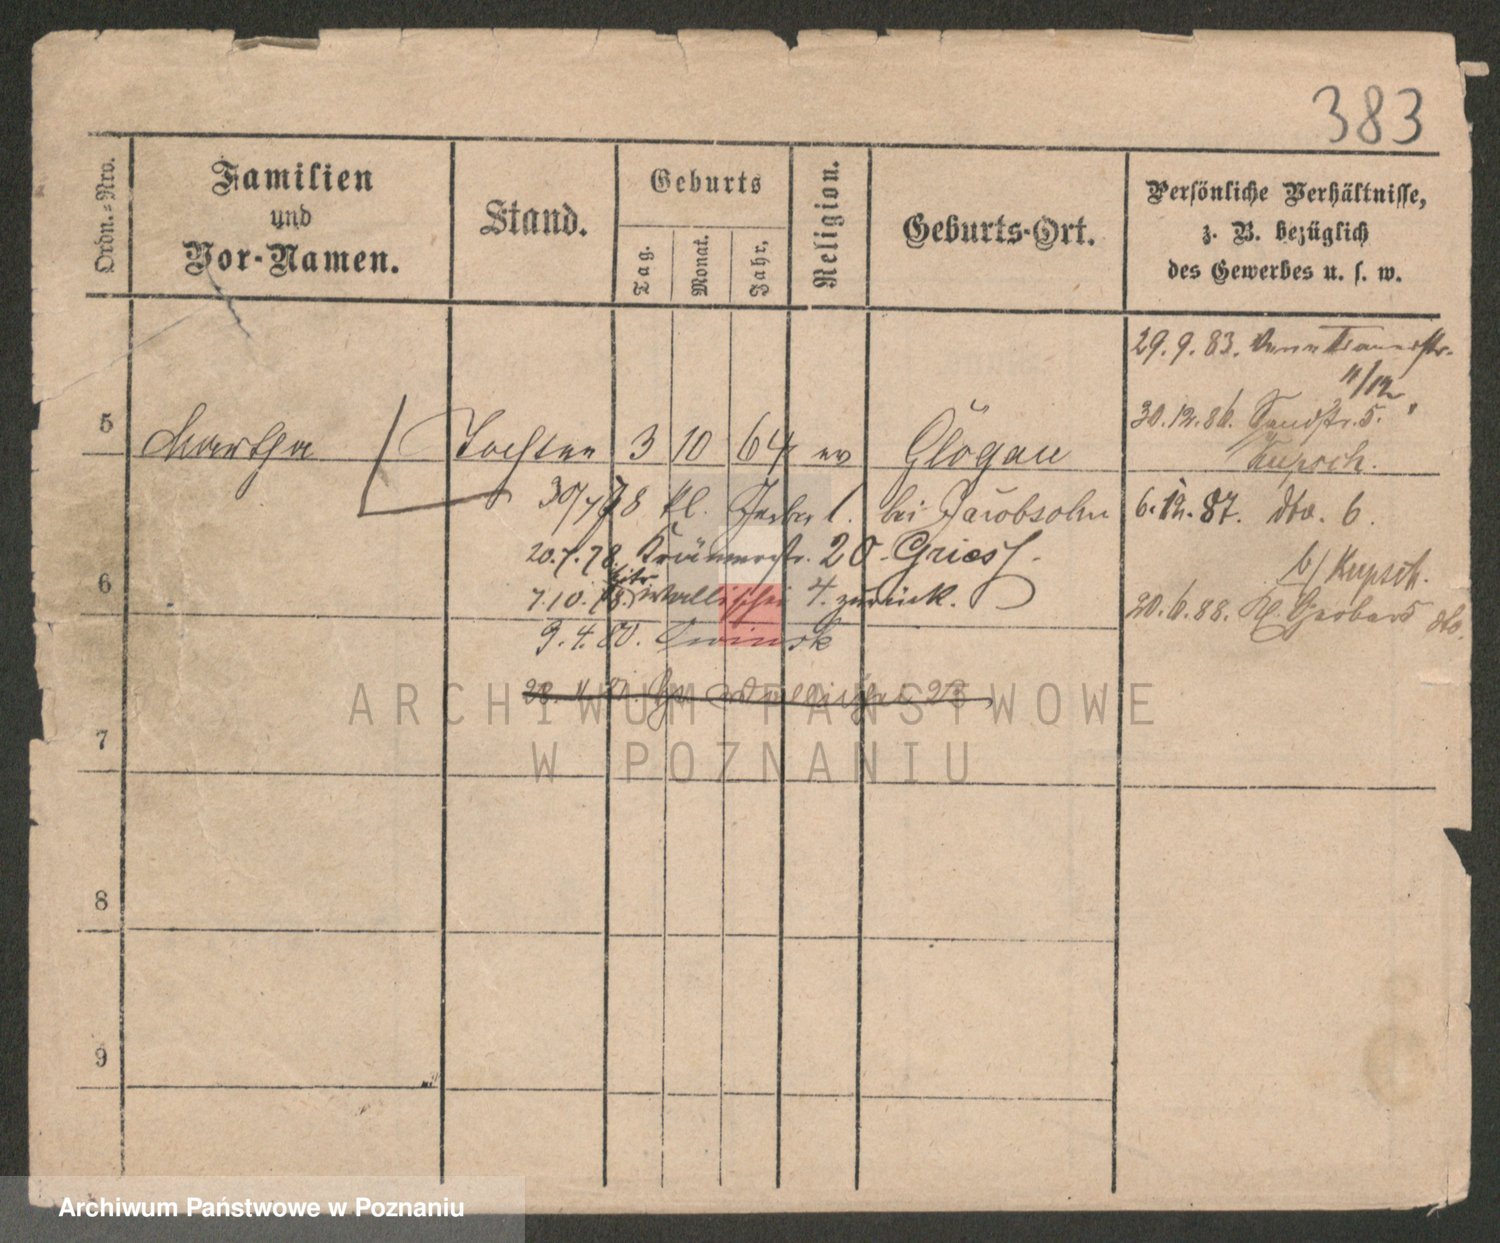 383
Ordn.-Nro.
Familien
und
Vor-Namen.
Stand.
Geburts
Tag.
Monat.
Jahr,
Religion.
Geburts-Ort.
Persönliche Verhältnisse,
z. B. bezüglich
des Gewerbes u. s. w.
29. 9. 83.
11/12
30. 12. 86. Sandstr. 5.
Kupsch.
5 Martha Tochter 3 10 64 ev Glogau
30/7 78 kl. Gerber 1. bei Jacobsohn
6. 12. 87. dto. 6.
20. 7. 78. Krämerstr. 20. Griess.
b/ Kupsch.
6
7. 10. 78. Wallischei 4. zurück.
20. 6. 88. Kl. Gerber 5 dto.
9. 4. 80.
Wallischei 23
ARCHIWUM PAŃSTWOWE
W POZNANIU
7
8
9
Archiwum Państwowe w Poznaniu